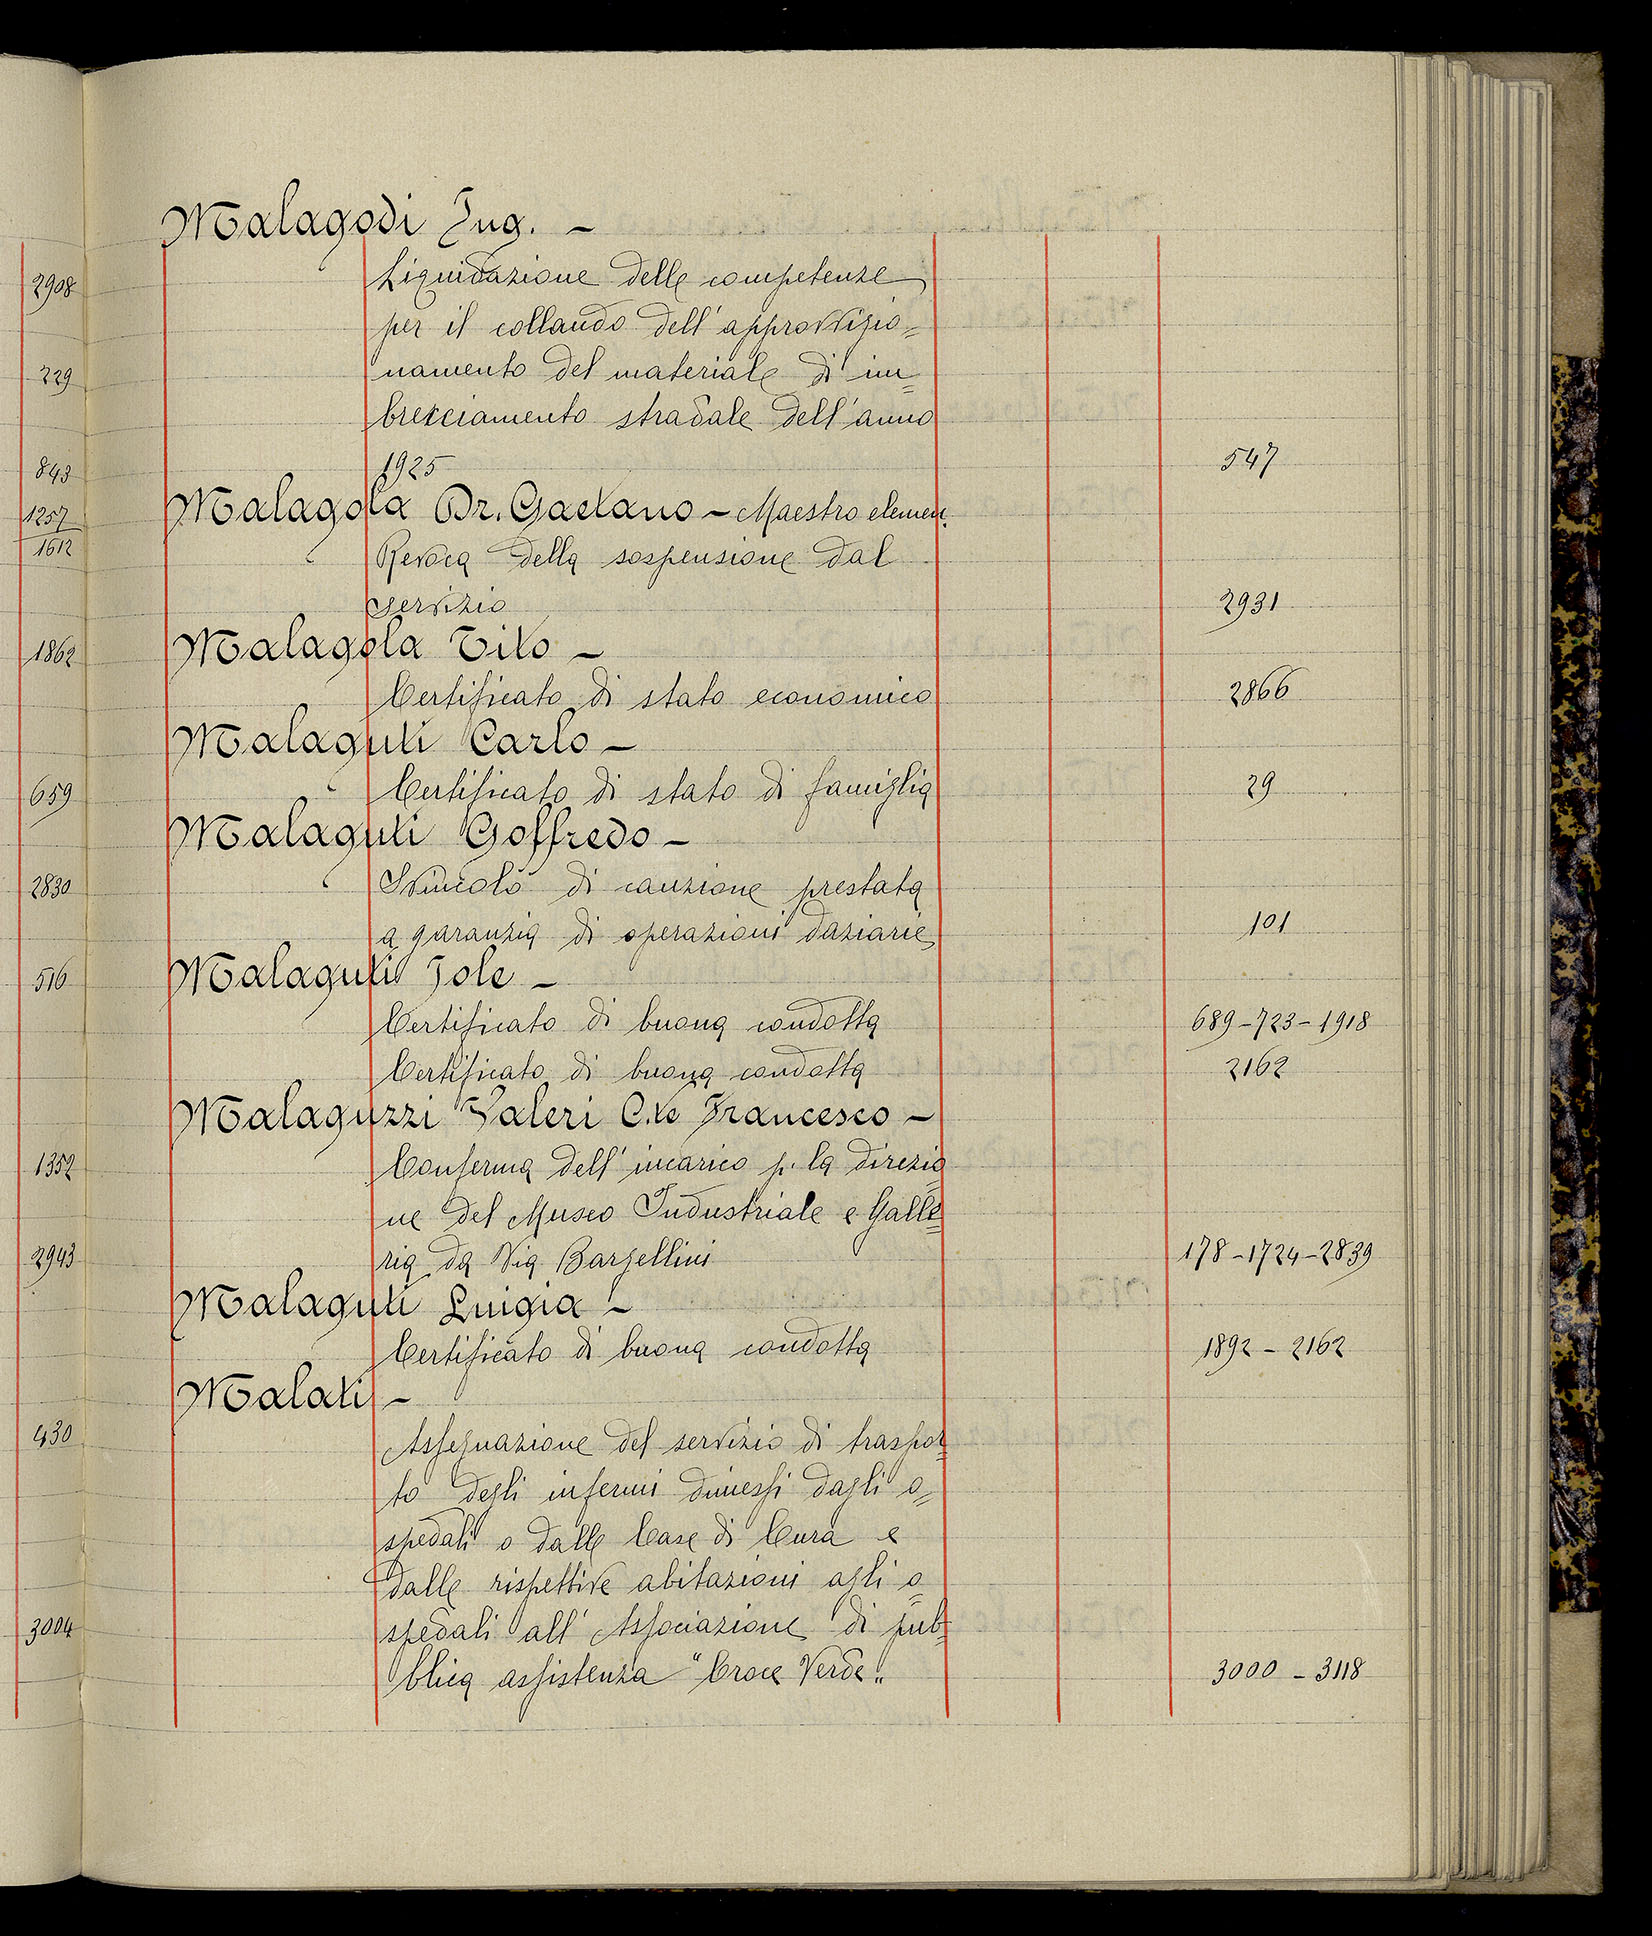 2908
229
843
1257
1612
1862
659
2830
516
1352
2943
430
3004
Malagodi Ing. –
Liquidazione delle competenze
per il collaudo dell'approvvigio=
namento del materiale di im=
brecciamento stradale dell'anno
1925 547
Malagola Dr. Gaetano – Maestro elemen.
Revoca della sospensione dal
servizio 2931
Malagola Tito –
Certificato di stato economico 2866
Malaguti Carlo –
Certificato di stato di famiglia 29
Malaguti Goffredo –
Svincolo di cauzione prestata
a garanzia di operazioni daziarie 101
Malaguti Jole –
Certificato di buona condotta 689 – 723 – 1918
Certificato di buona condotta 2162
Malaguzzi Valeri C.te Francesco –
Conferma dell'incarico p. la direzio=
ne del Museo Industriale e Galle=
ria da Via Bargellini 178 – 1724 – 2839
Malaguti Luigia –
Certificato di buona condotta 1892 – 2162
Malati –
Assegnazione del servizio di traspor=
to degli infermi dimessi dagli o=
spedali o dalle Case di Cura e
dalle rispettive abitazioni agli o=
spedali all'Associazione di pub=
blica assistenza "Croce Verde" 3000 – 3118